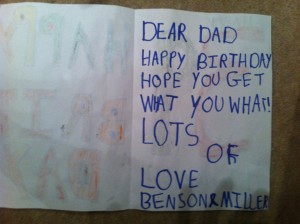 DEAR DAD
HAPPY BIRTHDAY
HOPE YOU GET
WHAT YOU WHAT!
LOTS
OF
LOVE
BENSON&MILLER